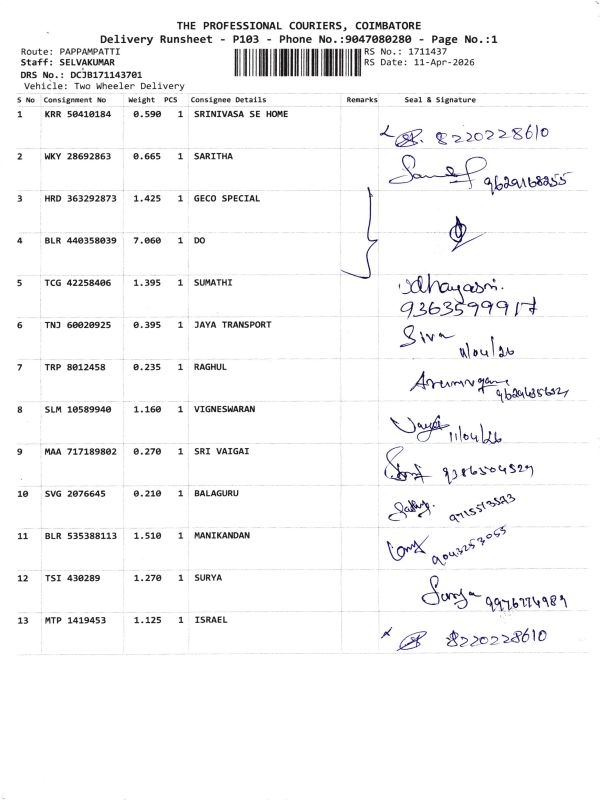 THE PROFESSIONAL COURIERS, COIMBATORE
Delivery Runsheet - P103 - Phone No.:9047080280 - Page No.:1
Route: PAPPAMPATTI RS No.: 1711437
Staff: SELVAKUMAR RS Date: 11-Apr-2026
DRS No.: DCJB171143701
Vehicle: Two Wheeler Delivery
S No Consignment No Weight PCS Consignee Details Remarks Seal & Signature
1 KRR 50410184 0.590 1 SRINIVASA SE HOME
8220228610
2 WKY 28692863 0.665 1 SARITHA
9629168255
3 HRD 363292873 1.425 1 GECO SPECIAL
4 BLR 440358039 7.060 1 DO
5 TCG 42258406 1.395 1 SUMATHI
Udhayasri.
9363599917
6 TNJ 60020925 0.395 1 JAYA TRANSPORT
Siva
11/04/26
7 TRP 8012458 0.235 1 RAGHUL
Arumugam
8 SLM 10589940 1.160 1 VIGNESWARAN
11/04/26
9 MAA 717189802 0.270 1 SRI VAIGAI
9386504529
10 SVG 2076645 0.210 1 BALAGURU
9715513523
11 BLR 535388113 1.510 1 MANIKANDAN
9043257055
12 TSI 430289 1.270 1 SURYA
Surya 9976774989
13 MTP 1419453 1.125 1 ISRAEL
8220228610